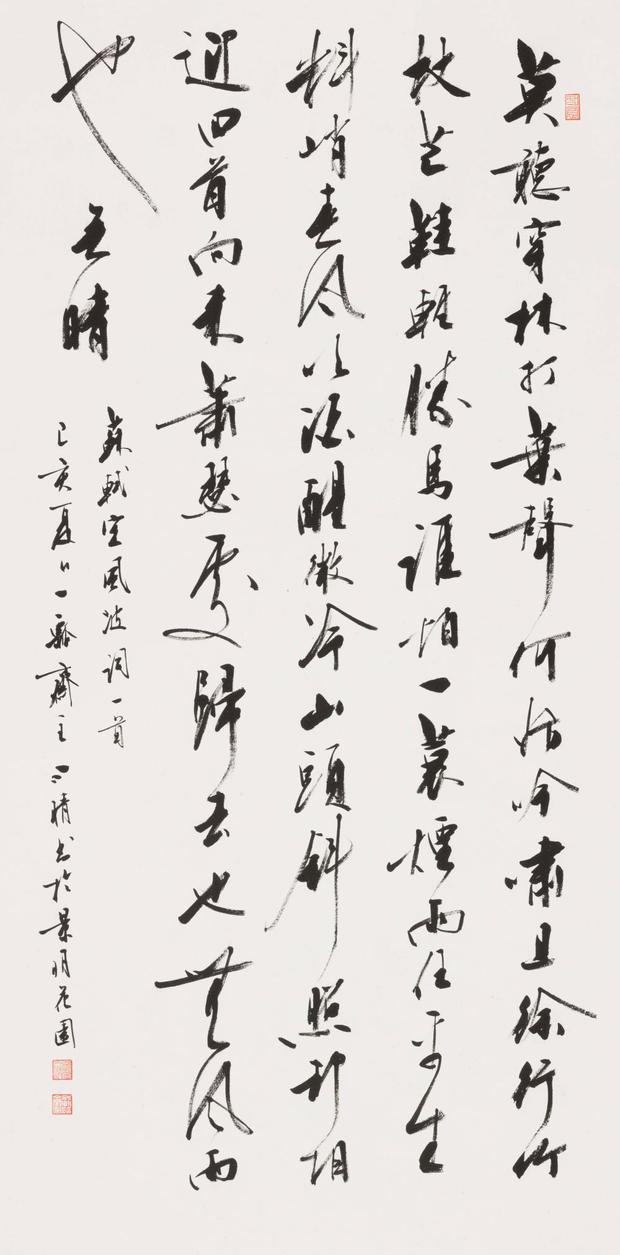 莫聽穿林打葉聲何妨吟嘯且徐行竹
杖芒鞋輕勝馬誰怕一蓑煙雨任平生
料峭春風吹酒醒微冷山頭斜照却相
迎回首向來蕭瑟處歸去也無風雨
也无晴
蘇軾定風波詞一首
己亥夏日一齋主晴书於景明花園